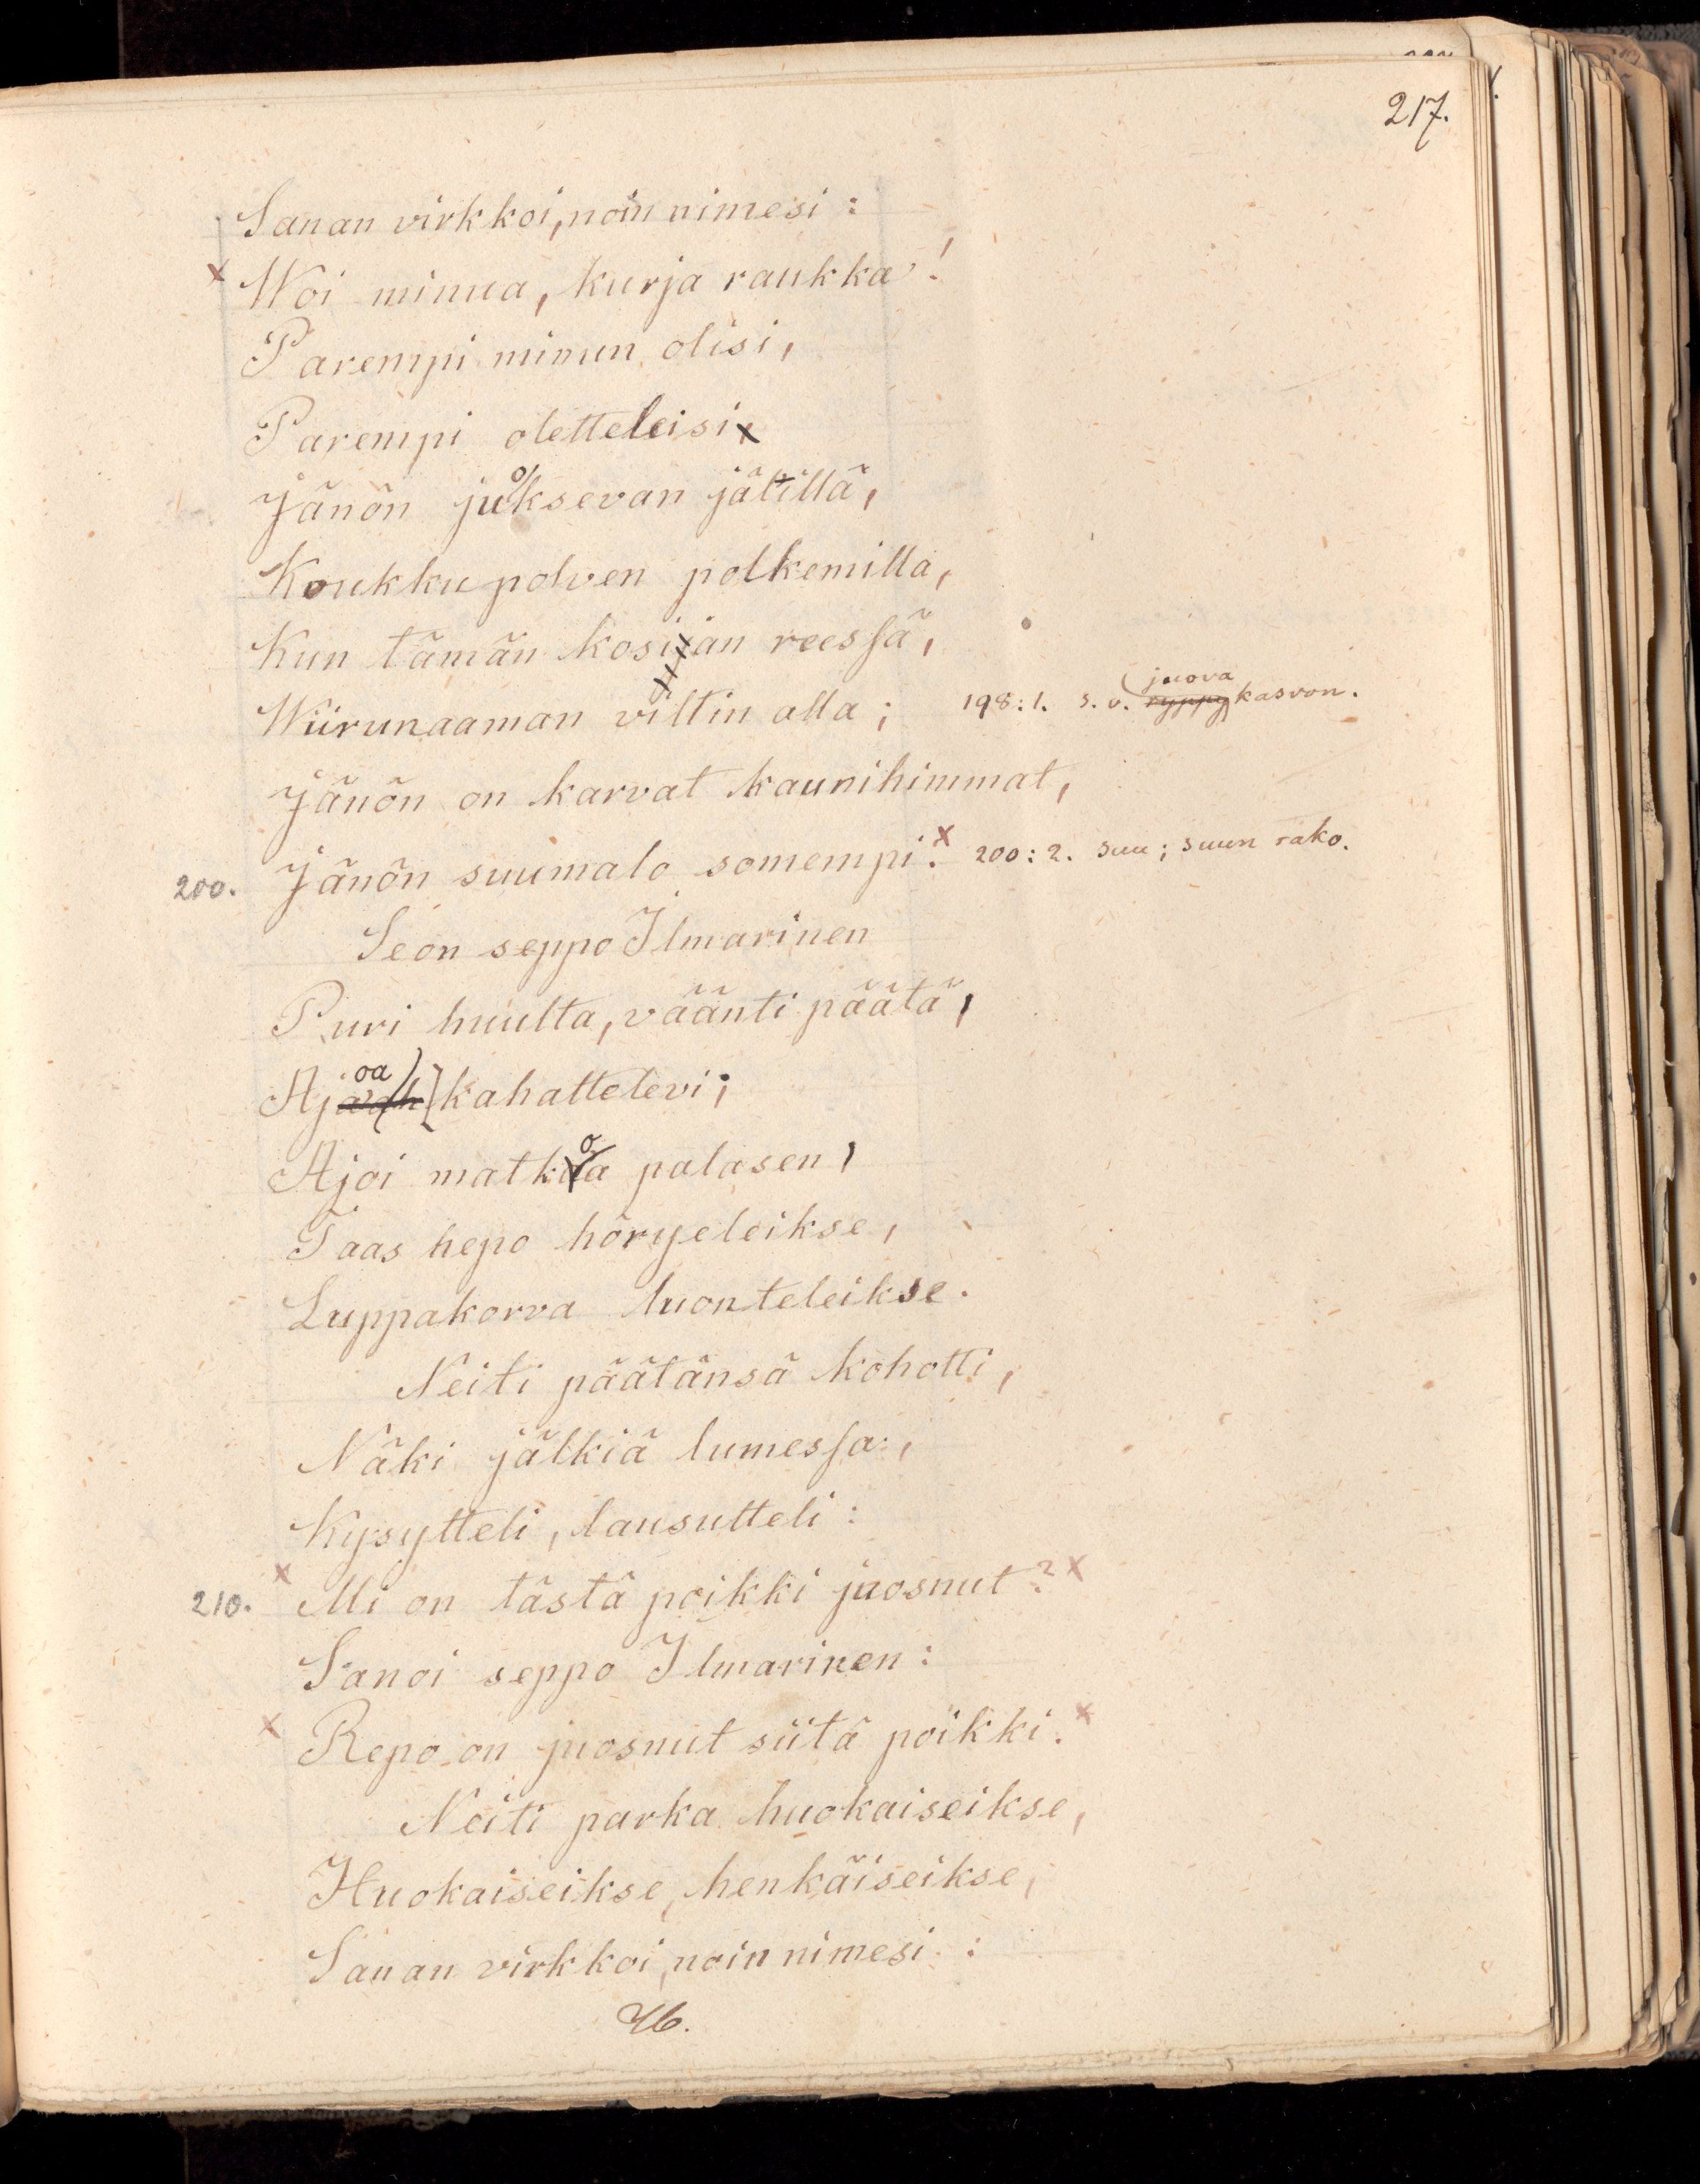 217.
Sanan virkkoi, noin nimesi:
x Woi minua, kurja raukka!
Parempi minun olisi,
Parempi oletteleisi,
Jänön juoksevan jälillä,
Koukkupolven polkemilla,
Kun tämän kosijan reessä,
Wiirunaaman viltin alla; 198:1. s. v. juova ryppy kasvon.
Jänön on karvat kaunihimmat,
200. Jänön suumalo somempi. x 200:2. suu; suun rako.
Se on seppo Ilmarinen
Puri huulta, väänti päätä,
Ajoa kahattelevi;
Ajoi matkoa palasen,
Taas hepo höryeleikse,
Luppakorva luonteleikse.
Neiti päätänsä kohotti,
Näki jälkiä lumessa,
Kysytteli, lausutteli:
210. x Mi on tästä poikki juosnut? x
Sanoi seppo Ilmarinen:
x Repo on juosnut siitä poikki. x
Neiti parka huokaiseikse,
Huokaiseikse, henkäiseikse,
Sanan virkkoi, noin nimesi:
46.